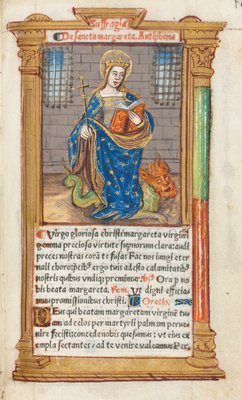 Suffragia
De sancta margareta. Antiphona
Virgo gloriosa christi margareta virginũ
gemma preciosa virtute supnorum clara: audi
preces nostras corā te fusas Fac nos iungi eter
nali choro: pesti⁹ ergo tuis adesto calamitatib⁹
nostris quibus vndiq; premimur. Ora p no
bis beata margareta. Vt digni efficia
mur promissionibus christi. Oratio.
Deus qui beatam margaretam virginē tu
am ad celos per martyrii palmam perue
nire fecisti: concede nobis quesumus: vt eius ex
empla sectantes, ad te venire valeamus Per